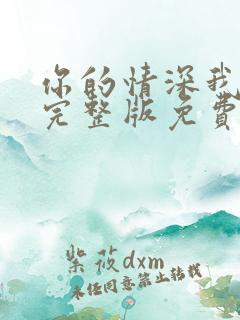 你的情深我
完整版免费
紫筱dxm
未经同意禁止转载